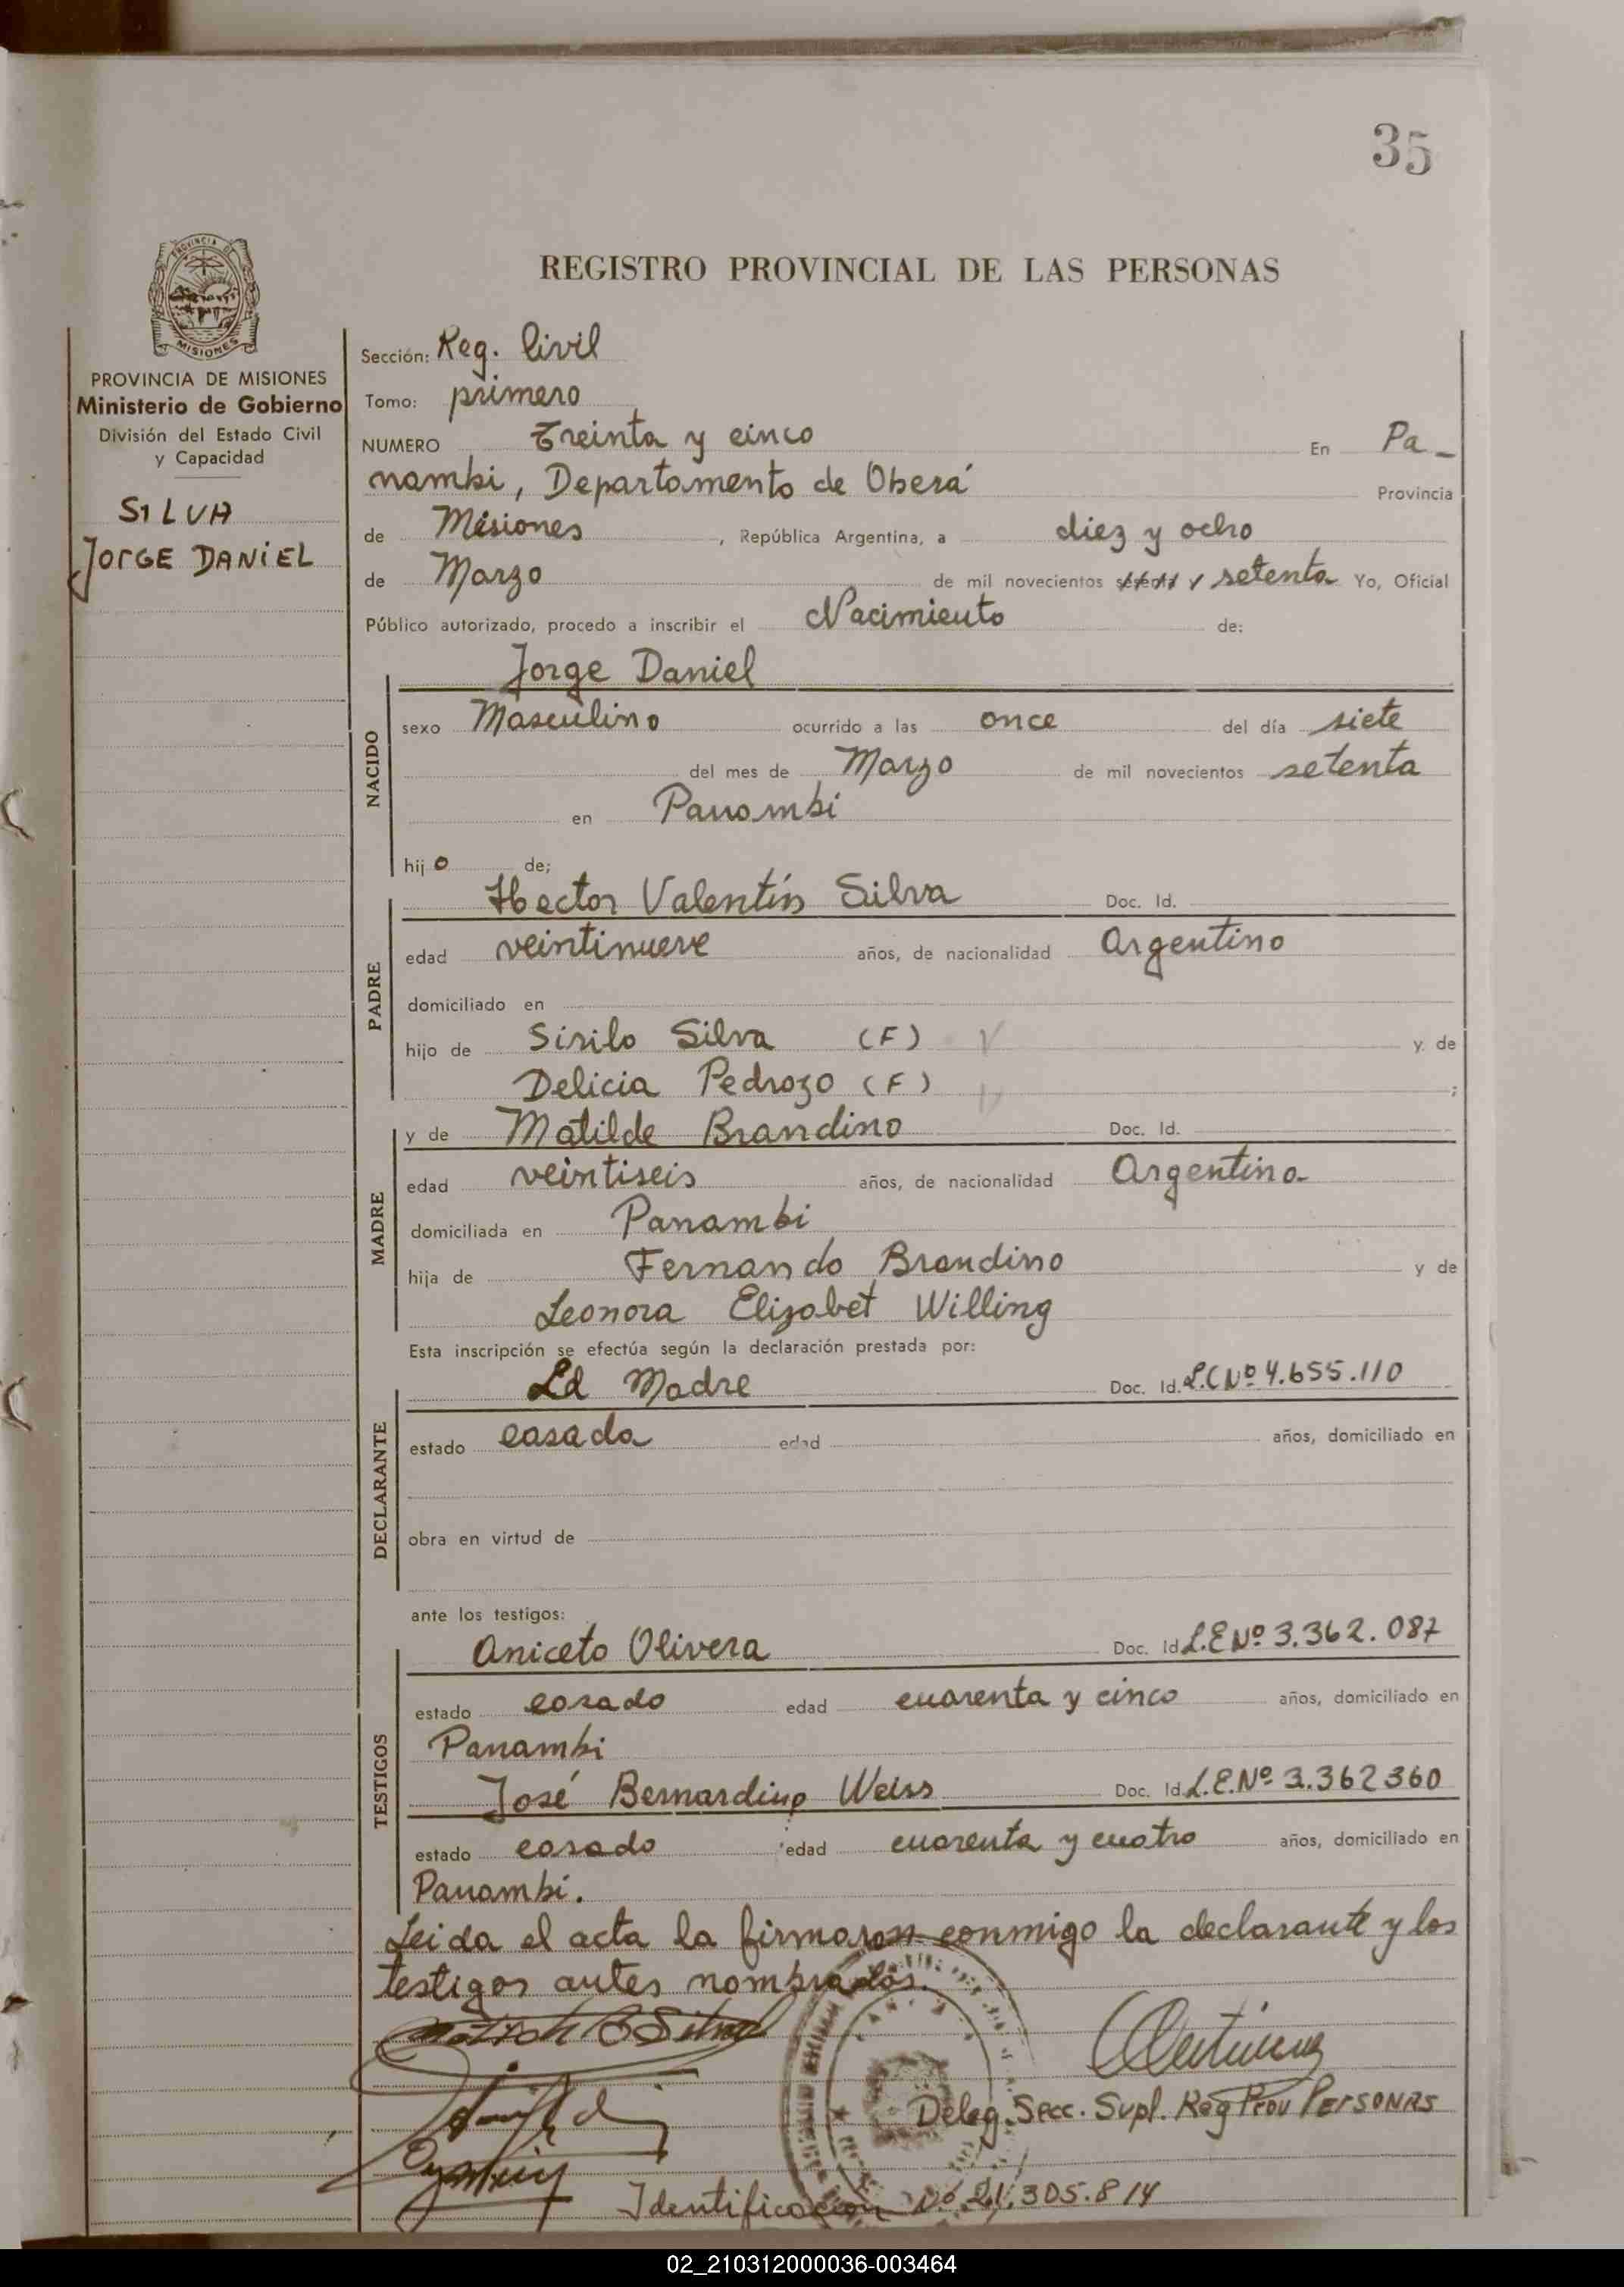 35
PROVINCIA DE
MISIONES
PROVINCIA DE MISIONES
Ministerio de Gobierno
División del Estado Civil
y Capacidad
SILVA
JORGE DANIEL
REGISTRO PROVINCIAL DE LAS PERSONAS
Sección: Reg. Civil
Tomo: primero
NUMERO Treinta y cinco En Pa-
nambi, Departamento de Oberá Provincia
de Misiones, República Argentina, a diez y ocho
de Marzo de mil novecientos setenta Yo, Oficial
Público autorizado, procedo a inscribir el Nacimiento de:
Jorge Daniel
NACIDO
sexo Masculino ocurrido a las once del día siete
del mes de Marzo de mil novecientos setenta
en Panambi
hijo de;
PADRE
Hector Valentín Silva Doc. Id.
edad veintinueve años, de nacionalidad Argentino
domiciliado en
hijo de Sirilo Silva (F) y de
Delicia Pedrozo (F) ;
MADRE
y de Matilde Brandino Doc. Id.
edad veintiseis años, de nacionalidad Argentina
domiciliada en Panambi
hija de Fernando Brandino y de
Leonora Elizabet Willing
Esta inscripción se efectúa según la declaración prestada por:
DECLARANTE
La Madre Doc. Id. L.C Nº 4.655.110
estado casada edad años, domiciliado en
obra en virtud de
ante los testigos:
TESTIGOS
Aniceto Olivera Doc. Id L.E Nº 3.362.087
estado casado edad cuarenta y cinco años, domiciliado en
Panambi
José Bernardino Weiss Doc. Id. L.E. Nº 3.362360
estado casado edad cuarenta y cuatro años, domiciliado en
Panambi.
Leida el acta la firmaron conmigo la declarante y los
testigos antes nombrados.
Deleg. Secc. Supl. Reg Prov PERSONAS
Identificacion Nº 21.305.814
02_210312000036-003464